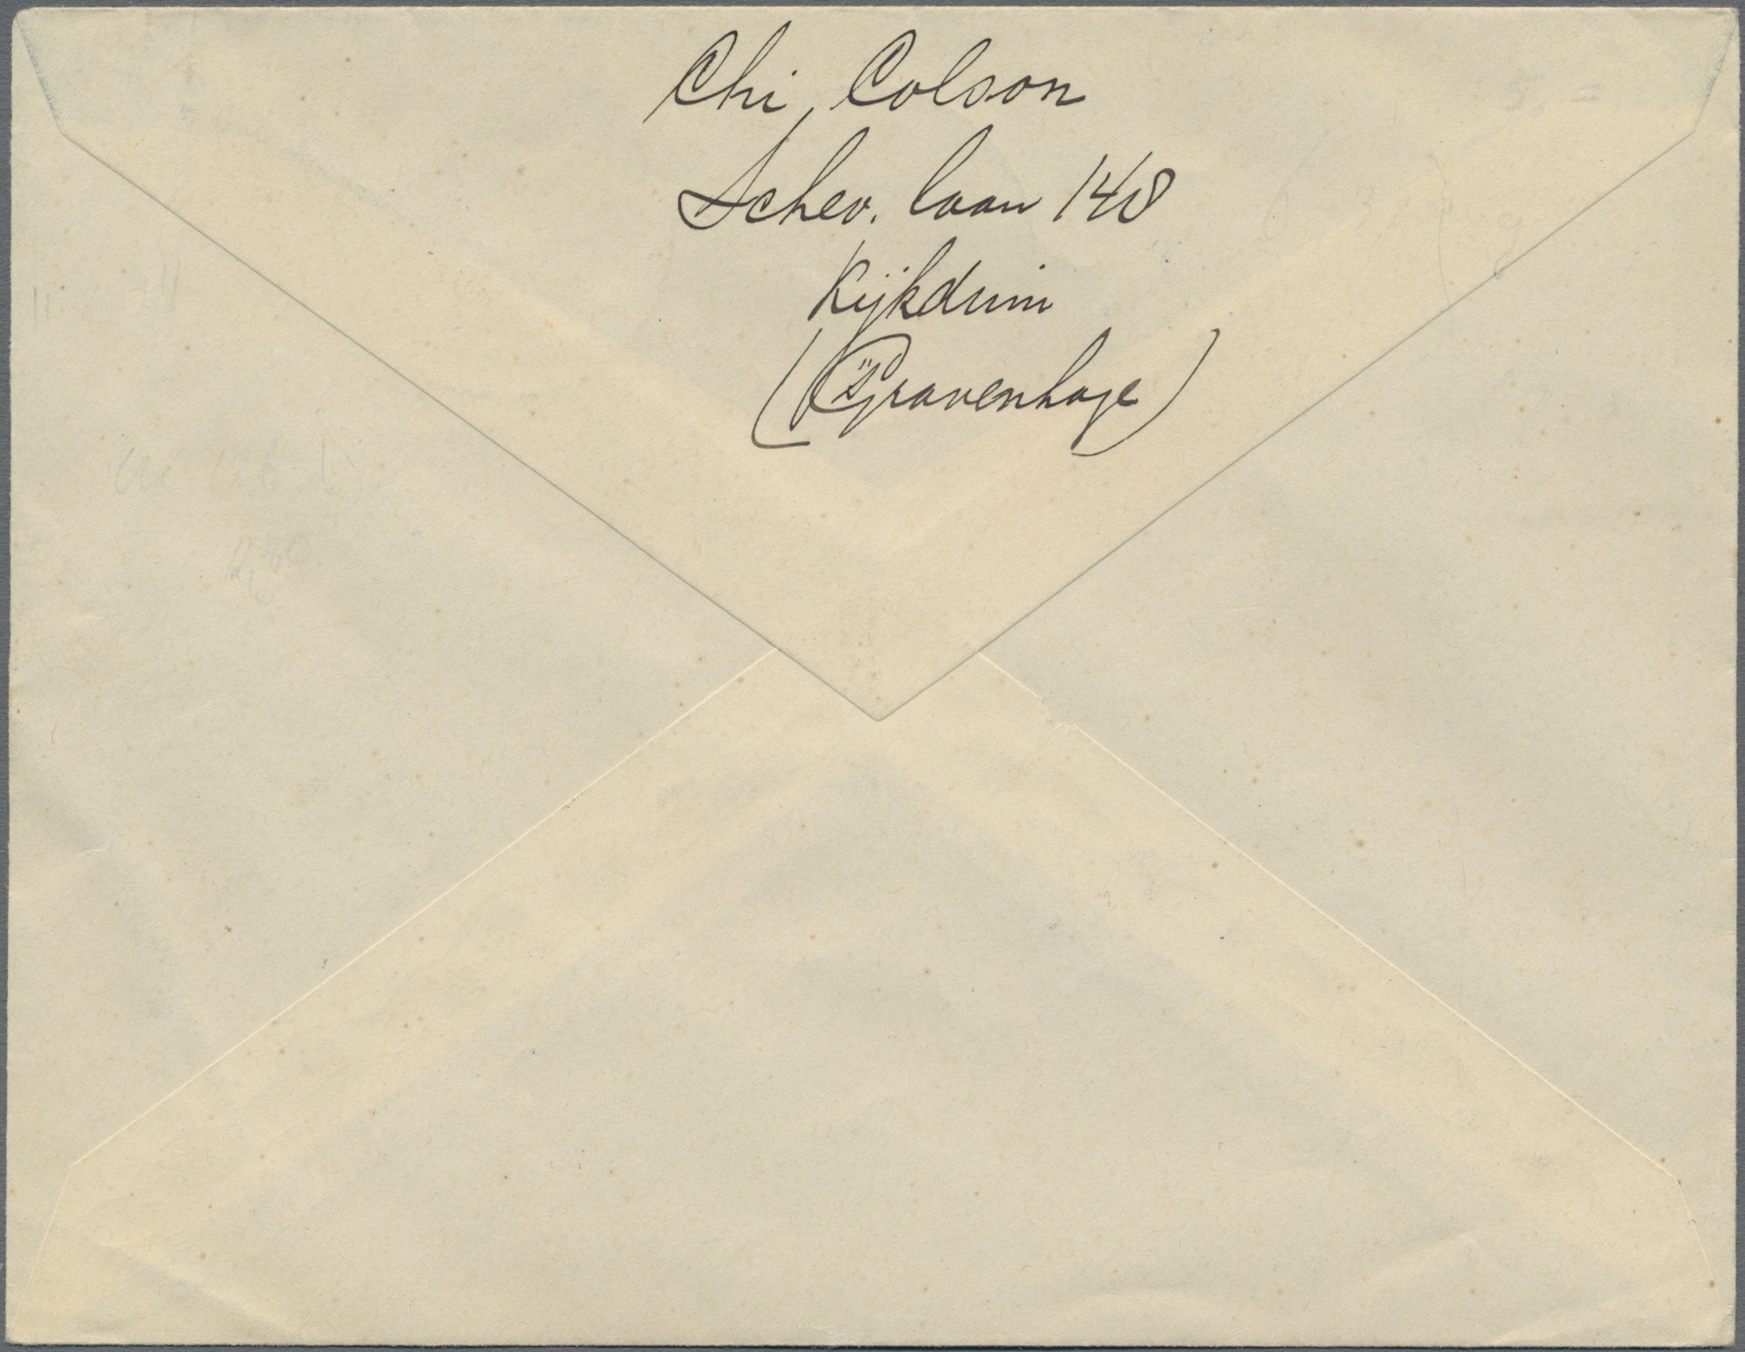 Chi, Colson
Schev. laan 148
Kijkduin
('s Gravenhage)
2,30